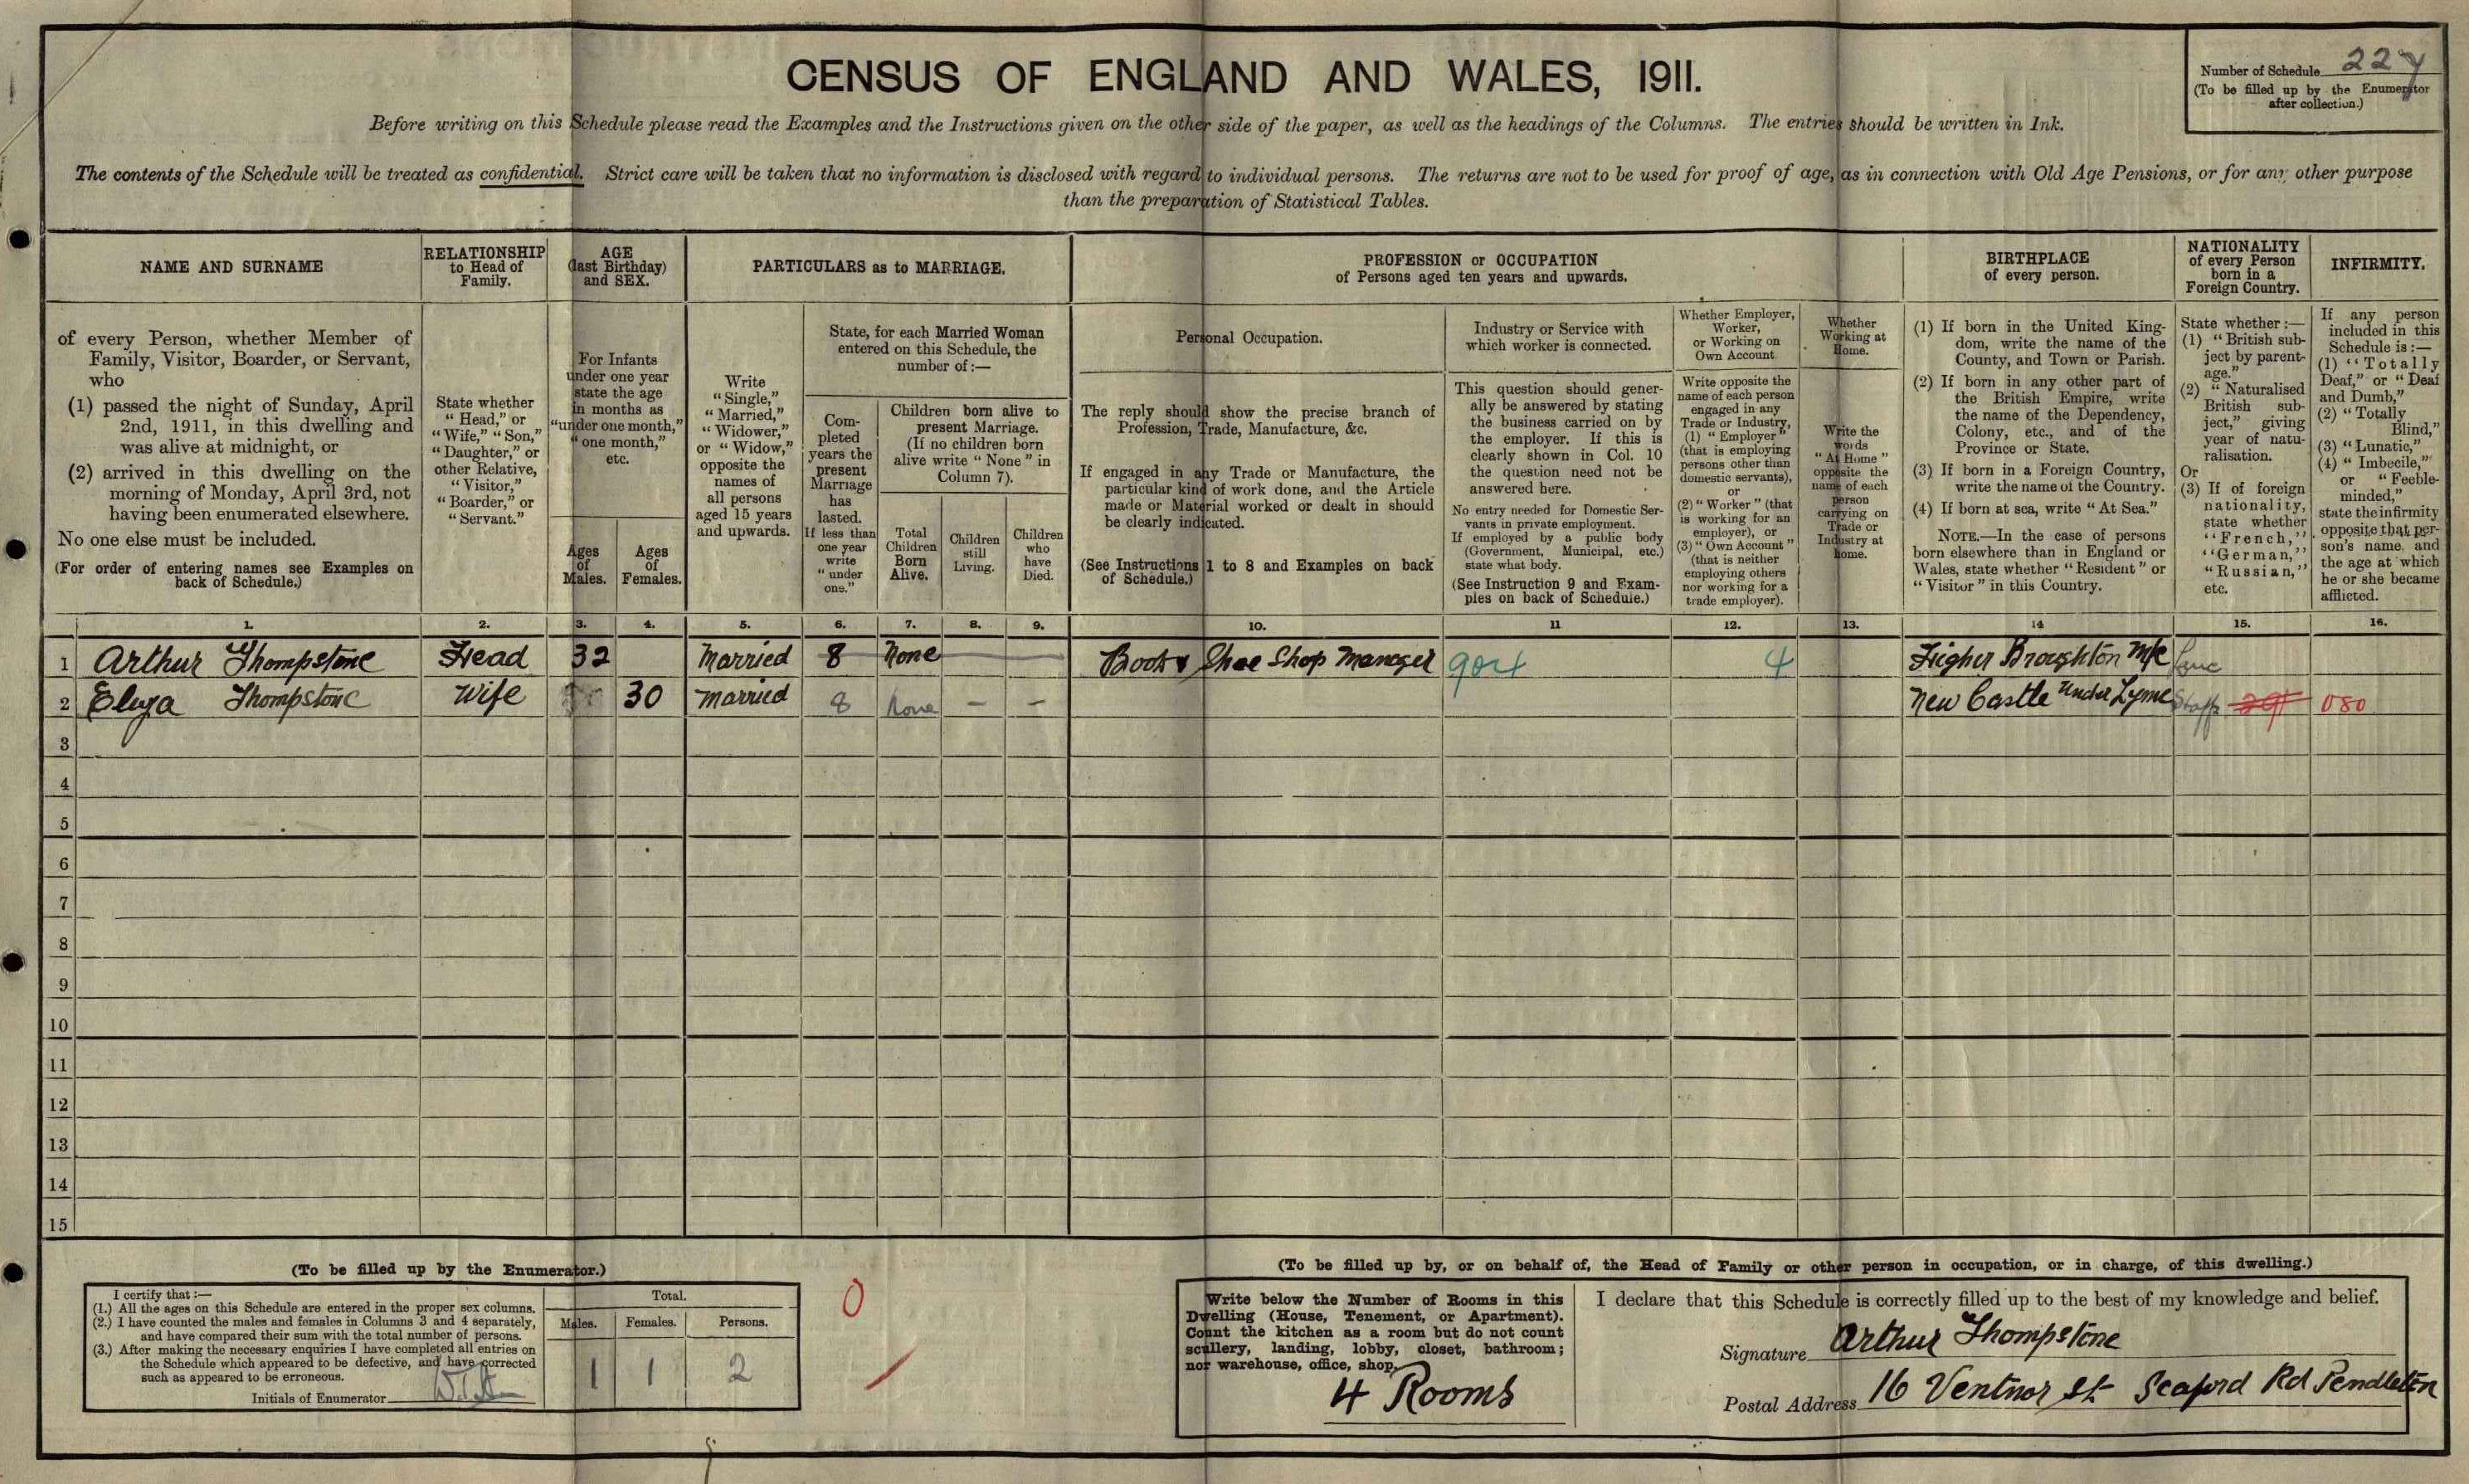 CENSUS OF ENGLAND AND WALES, 1911.
Number of Schedule 227
(To be filled up by the Enumerator
after collection.)
Before writing on this Schedule please read the Examples and the Instructions given on the other side of the paper, as well as the headings of the Columns. The entries should be written in Ink.
The contents of the Schedule will be treated as confidential. Strict care will be taken that no information is disclosed with regard to individual persons. The returns are not to be used for proof of age, as in connection with Old Age Pensions, or for any other purpose
than the preparation of Statistical Tables.
NAME AND SURNAME
of every Person, whether Member of
Family, Visitor, Boarder, or Servant,
who
(1) passed the night of Sunday, April
2nd, 1911, in this dwelling and
was alive at midnight, or
(2) arrived in this dwelling on the
morning of Monday, April 3rd, not
having been enumerated elsewhere.
No one else must be included.
(For order of entering names see Examples on
back of Schedule.)
RELATIONSHIP
to Head of
Family.
State whether
"Head," or
"Wife," "Son,"
"Daughter," or
other Relative,
"Visitor,"
"Boarder," or
"Servant."
AGE
(last Birthday)
and SEX.
For Infants
under one year
state the age
in months as
"under one month,"
"one month,"
etc.
Ages
of
Males.
Ages
of
Females.
PARTICULARS as to MARRIAGE.
Write
"Single,"
"Married,"
"Widower,"
or "Widow,"
opposite the
names of
all persons
aged 15 years
and upwards.
State, for each Married Woman
entered on this Schedule, the
number of :—
Com-
pleted
years the
present
Marriage
has
lasted.
If less than
one year
write
"under
one."
Children born alive to
present Marriage.
(If no children born
alive write "None" in
Column 7).
Total
Children
Born
Alive.
Children
still
Living.
Children
who
have
Died.
PROFESSION or OCCUPATION
of Persons aged ten years and upwards.
Personal Occupation.
The reply should show the precise branch of
Profession, Trade, Manufacture, &c.
If engaged in any Trade or Manufacture, the
particular kind of work done, and the Article
made or Material worked or dealt in should
be clearly indicated.
(See Instructions 1 to 8 and Examples on back
of Schedule.)
Industry or Service with
which worker is connected.
This question should gener-
ally be answered by stating
the business carried on by
the employer. If this is
clearly shown in Col. 10
the question need not be
answered here.
No entry needed for Domestic Ser-
vants in private employment.
If employed by a public body
(Government, Municipal, etc.)
state what body.
(See Instruction 9 and Exam-
ples on back of Schedule.)
Whether Employer,
Worker,
or Working on
Own Account
Write opposite the
name of each person
engaged in any
Trade or Industry,
(1) "Employer"
(that is employing
persons other than
domestic servants),
or
(2) "Worker" (that
is working for an
employer), or
(3) "Own Account"
(that is neither
employing others
nor working for a
trade employer).
Whether
Working at
Home.
Write the
words
"At Home"
opposite the
name of each
person
carrying on
Trade or
Industry at
home.
BIRTHPLACE
of every person.
(1) If born in the United King-
dom, write the name of the
County, and Town or Parish.
(2) If born in any other part of
the British Empire, write
the name of the Dependency,
Colony, etc., and of the
Province or State.
(3) If born in a Foreign Country,
write the name of the Country.
(4) If born at sea, write "At Sea."
NOTE.—In the case of persons
born elsewhere than in England or
Wales, state whether "Resident" or
"Visitor" in this Country.
NATIONALITY
of every Person
born in a
Foreign Country.
State whether :—
(1) "British sub-
ject by parent-
age."
(2) "Naturalised
British sub-
ject," giving
year of natu-
ralisation.
Or
(3) If of foreign
nationality,
state whether
"French,"
"German,"
"Russian,"
etc.
INFIRMITY.
If any person
included in this
Schedule is :—
(1) "Totally
Deaf," or "Deaf
and Dumb,"
(2) "Totally
Blind,"
(3) "Lunatic,"
(4) "Imbecile,"
or "Feeble-
minded,"
state the infirmity
opposite that per-
son's name, and
the age at which
he or she became
afflicted.
1. 2. 3. 4. 5. 6. 7. 8. 9. 10. 11 12. 13. 14 15. 16.
1 Arthur Thompstone Head 32 Married 8 None Boot & Shoe Shop Manager 904 4 Higher Broughton M/c Lanc
2 Eliza Thompstone Wife 30 Married 8 None — — New Castle Under Lyme Staffs 291 080
3
4
5
6
7
8
9
10
11
12
13
14
15
(To be filled up by the Enumerator.)
I certify that :—
(1.) All the ages on this Schedule are entered in the proper sex columns.
(2.) I have counted the males and females in Columns 3 and 4 separately,
and have compared their sum with the total number of persons.
(3.) After making the necessary enquiries I have completed all entries on
the Schedule which appeared to be defective, and have corrected
such as appeared to be erroneous.
Initials of Enumerator
Total.
Males. Females. Persons.
1 1 2
0
(To be filled up by, or on behalf of, the Head of Family or other person in occupation, or in charge, of this dwelling.)
Write below the Number of Rooms in this
Dwelling (House, Tenement, or Apartment).
Count the kitchen as a room but do not count
scullery, landing, lobby, closet, bathroom;
nor warehouse, office, shop.
4 Rooms
I declare that this Schedule is correctly filled up to the best of my knowledge and belief.
Signature Arthur Thompstone
Postal Address 16 Ventnor St Seaford Rd Pendleton